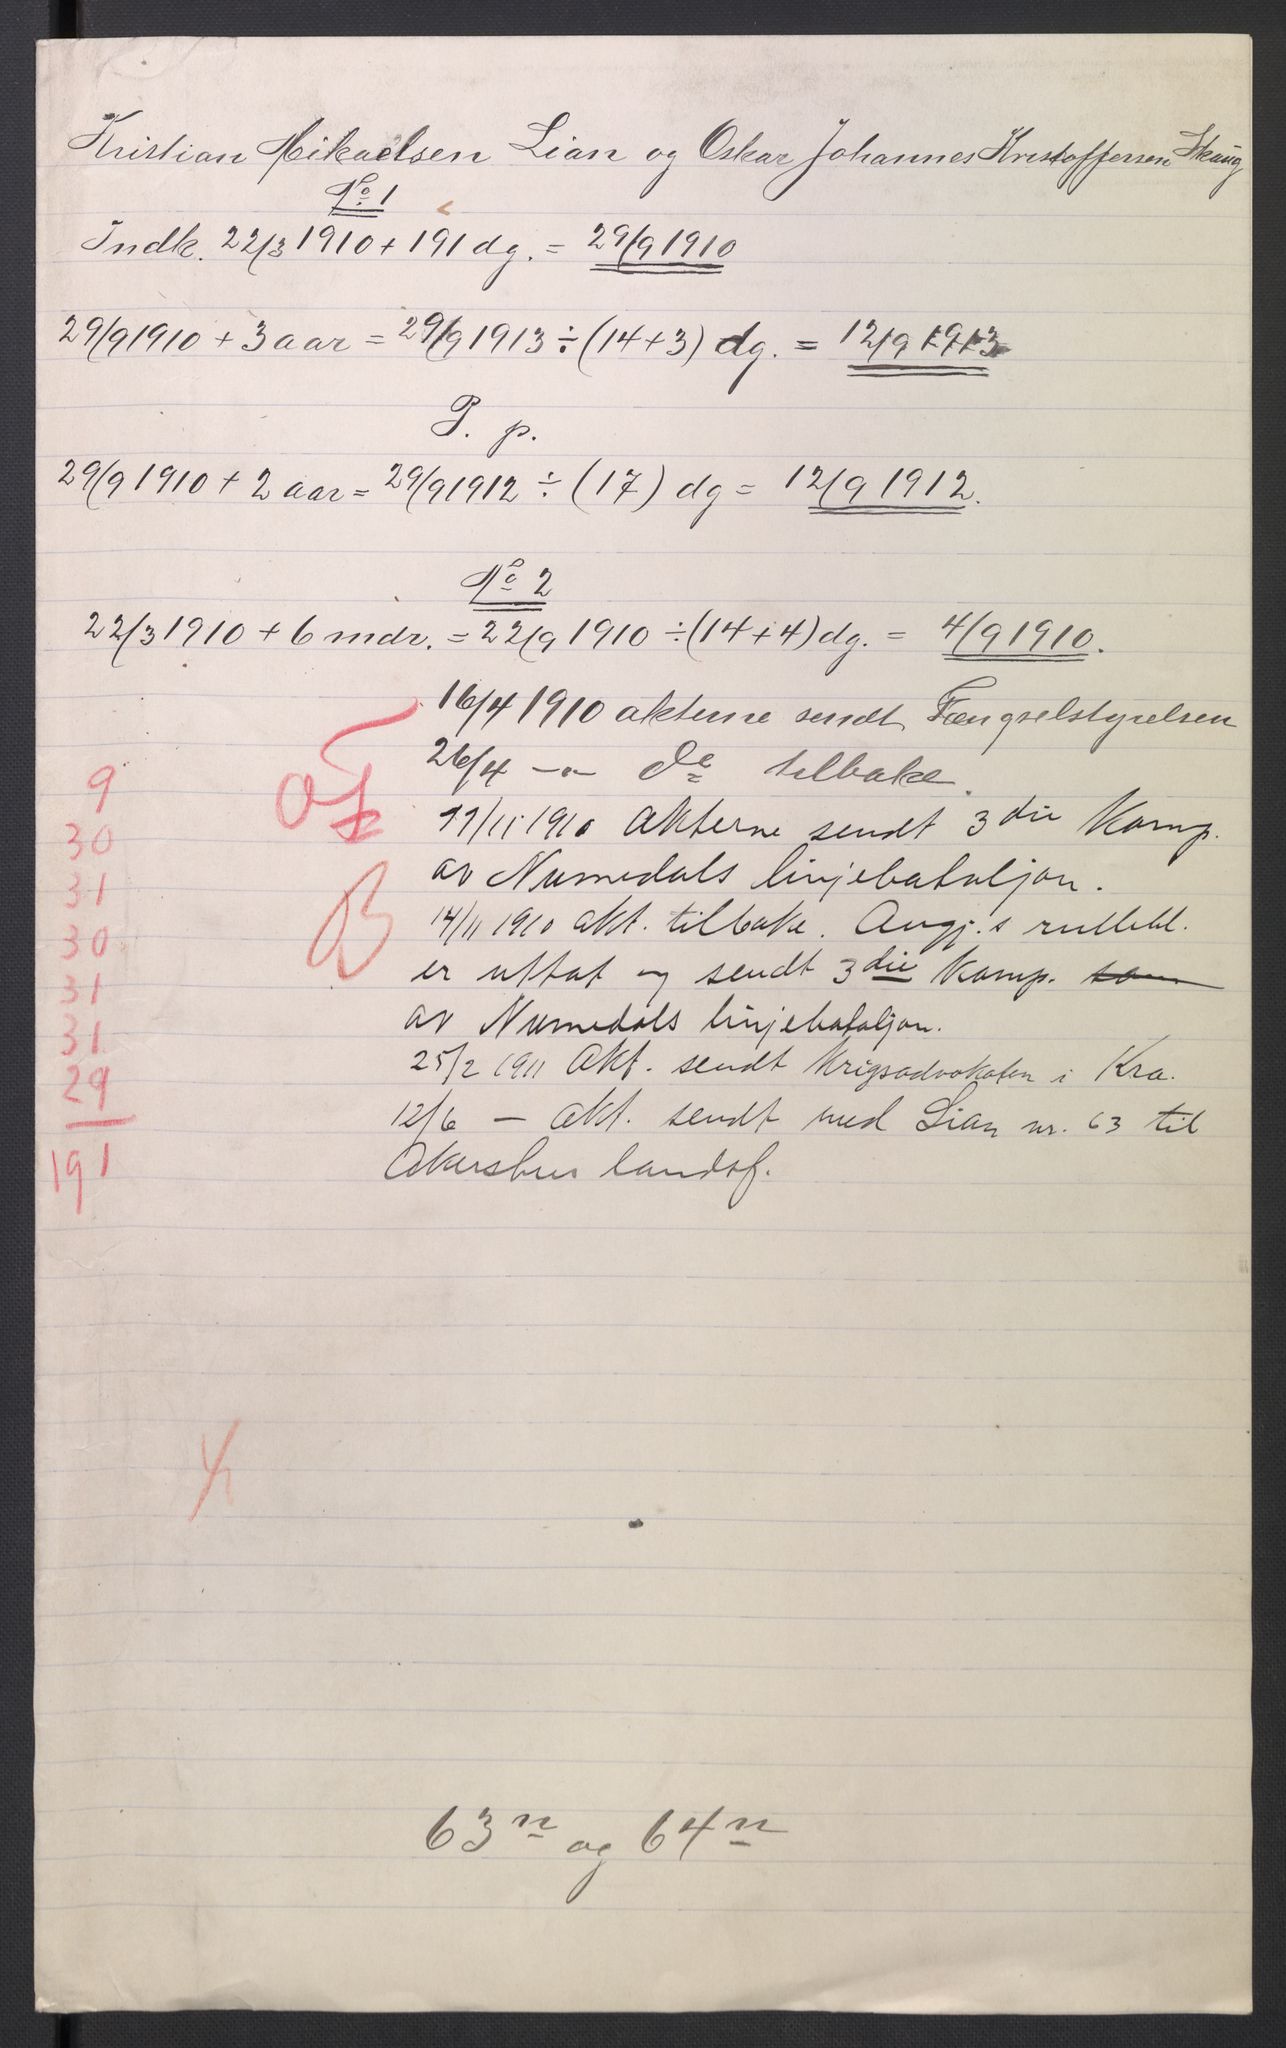 Kristian Mikaelsen Lian og Oskar Johannes Kristoffersen Skaug
No 1
Indk. 22/3 1910 + 191 dg. = 29/9 1910
29/9 1910 + 3 aar = 29/9 1913 ÷ (14 + 3) dg. = 12/9 1913
P. p.
29/9 1910 + 2 aar = 29/9 1912 ÷ (17) dg = 12/9 1912.
No 2
22/3 1910 + 6 mdr. = 22/9 1910 ÷ (14 + 4) dg. = 4/9 1910.
16/4 1910 akterne sendt Fængselstyrelsen
26/4 —"— do tilbake.
11/11 1910 akterne sendt 3die Komp.
av Numedals linjebataljon.
14/11 1910 akt. tilbake. Angj.s rullebl.
er uttat og sendt 3die Komp.
av Numedals linjebataljon.
25/2 1911 Akt. sendt Krigsadvokaten i Kra.
12/6 — akt. sendt med Lian nr. 63 til
Akershus landsf.
9
30
31
30
31
31
29
191
B
63n og 64n